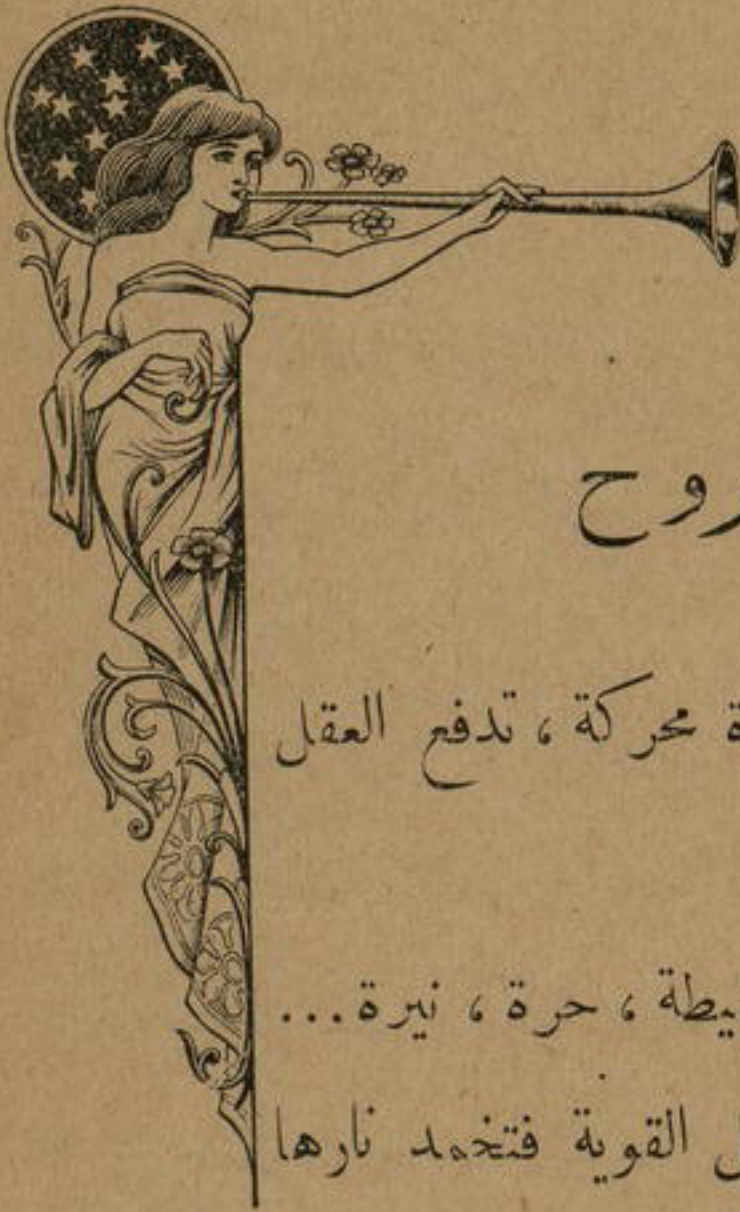 روح
محركة ، تدفع العقل
حرة ، نيرة ...
القوية فتخمد نارها